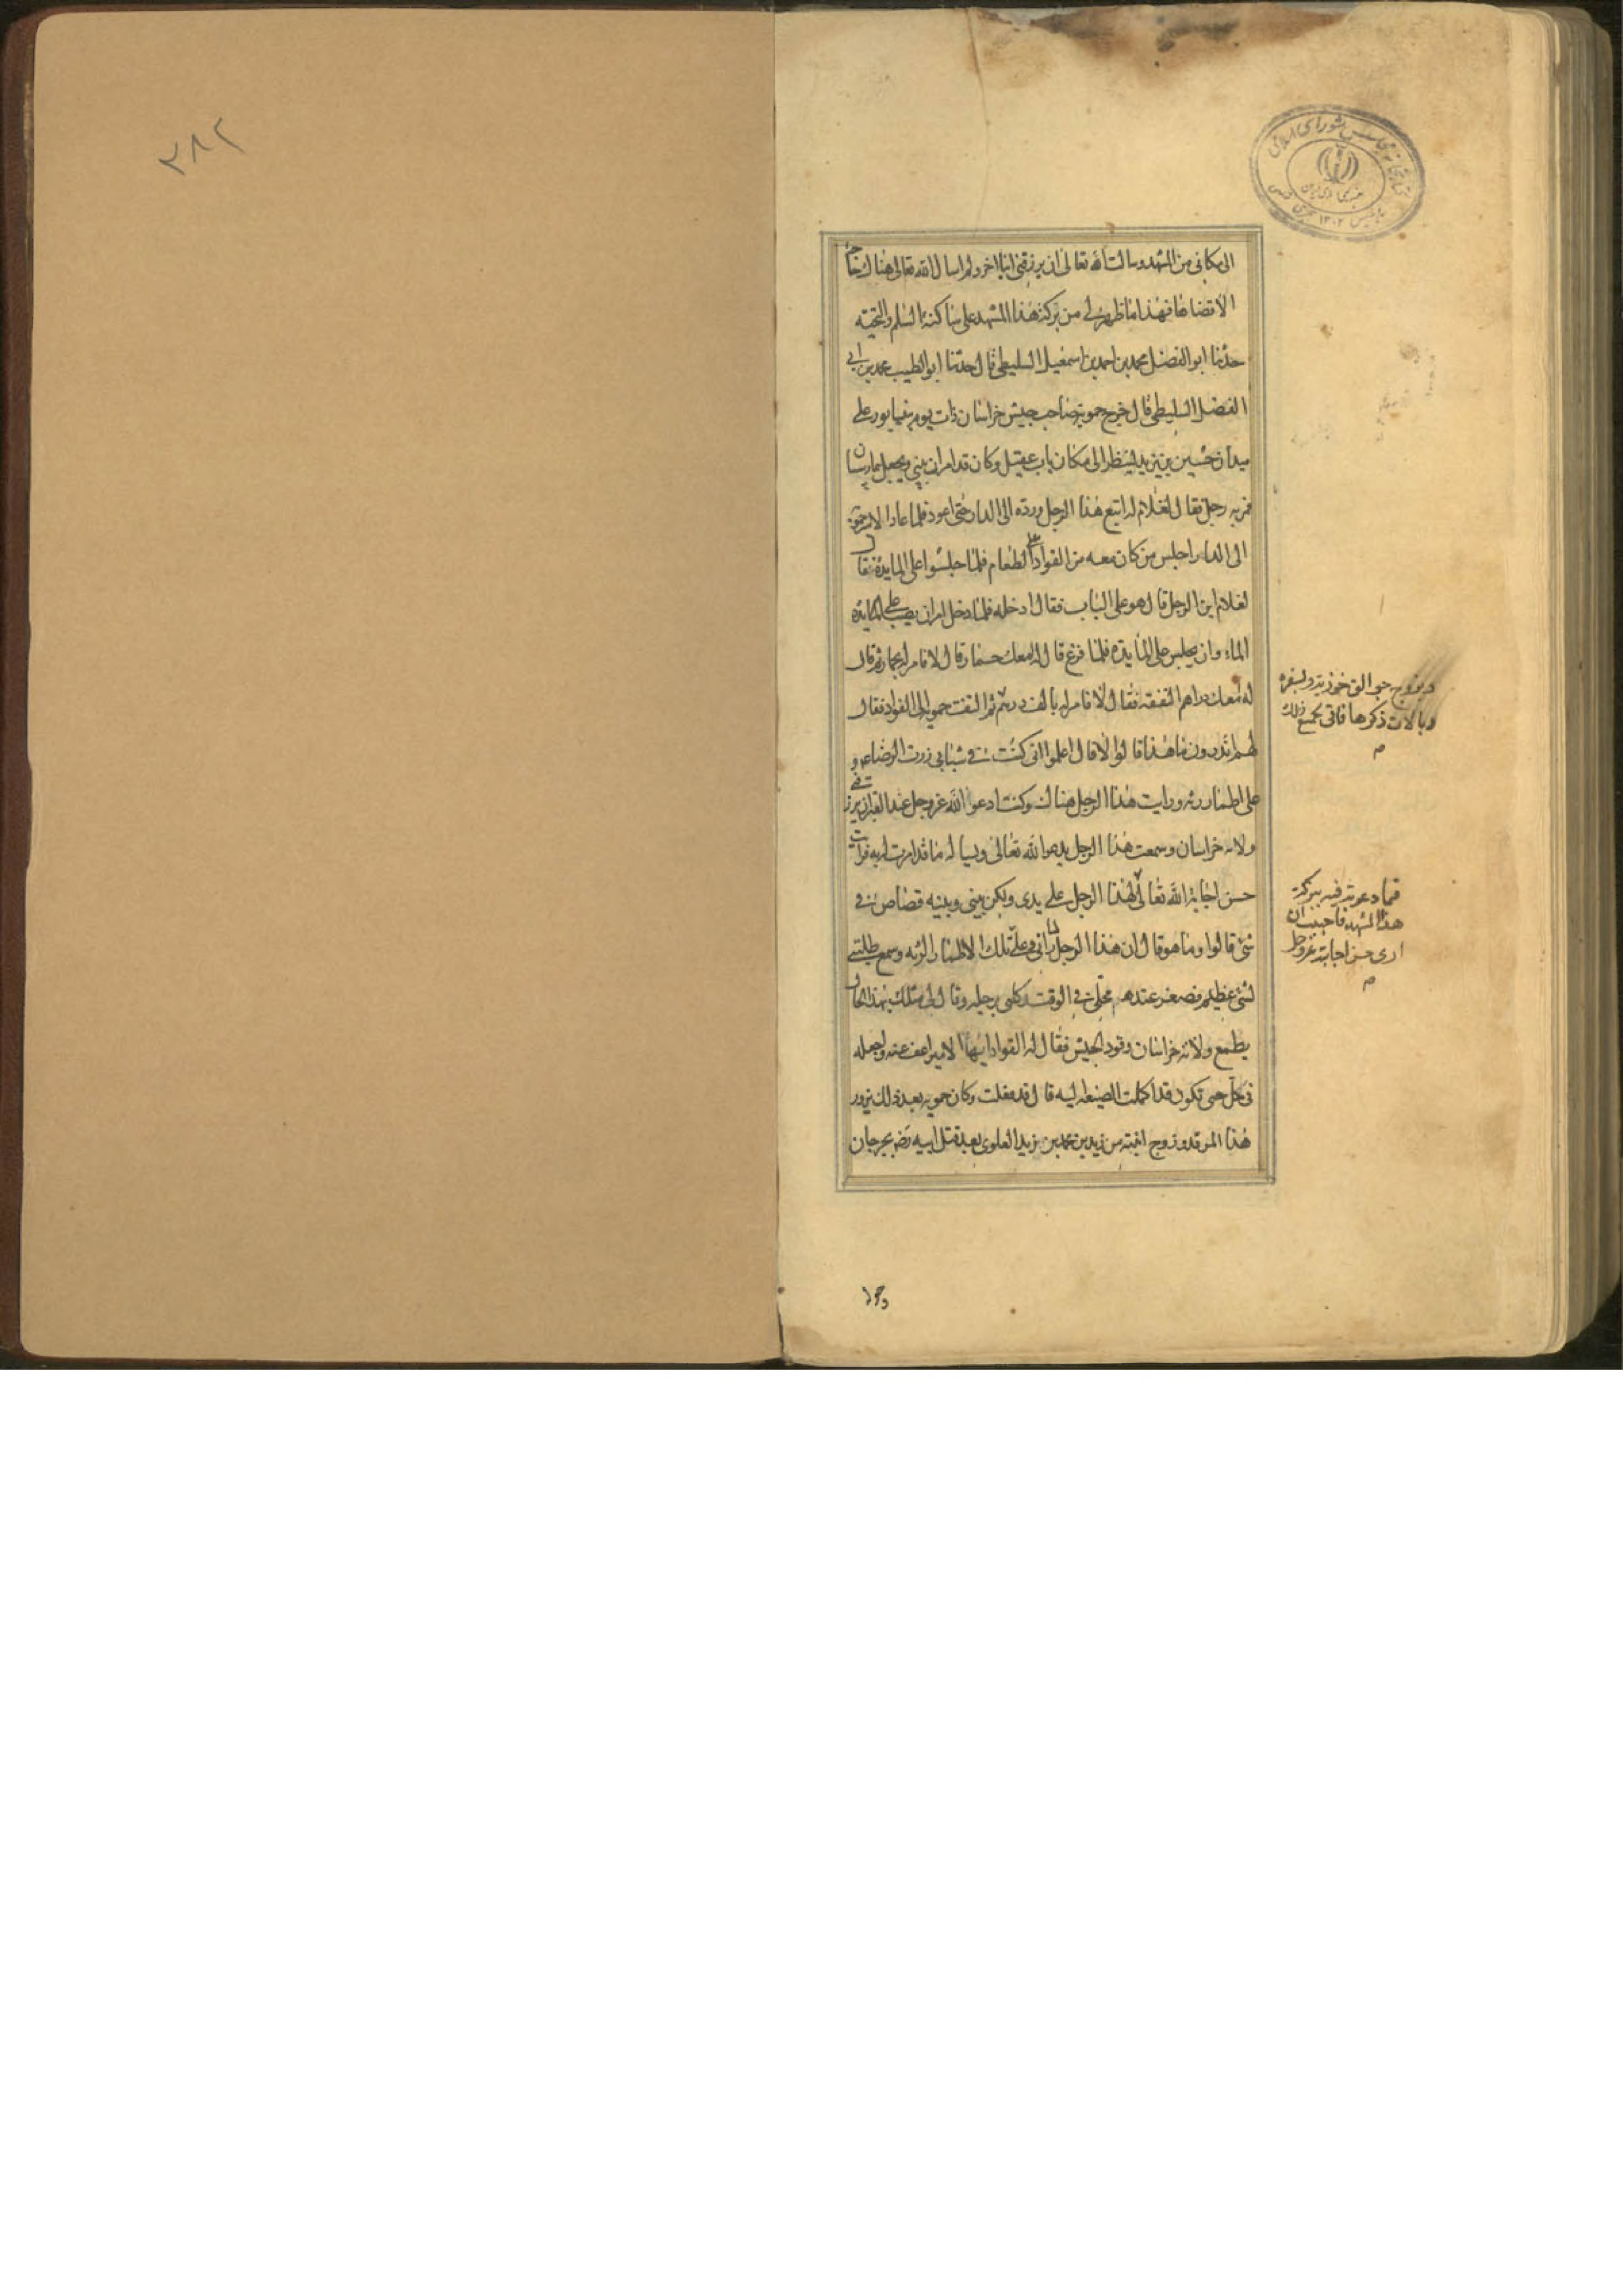 الى مكانى من المشهد وسالت الله تعالى ان يرزقنى ابنا اخر ولم اسال الله تعالى هناك حاجة
الا قضاها فهذا ما ظهر لى من بركة هذا المشهد على ساكنه السلم والتحية
حدثنا ابو الفضل محمد بن احمد بن اسمعيل السليطى قال حدثنا ابو الطيب محمد بن ابى
الفضل السليطى قال خرج حمويه صاحب جيش خراسان ذات يوم بنيسابور على
ميدان حسين بن يزيد لينظر الى مكان باب عقيل وكان قد امر ان يبنى ويجعل بيمارستان
فمر به رجل فقال لغلام له اتبع هذا الرجل ورده الى الدار حتى اعود فلما عاد الامير حمويه
الى الدار اجلس من كان معه من القواد على الطعام فلما جلسوا على المايدة فقال
لغلام اين الرجل قال هو على الباب فقال ادخله فلما دخل امر ان يصب على المايدة
الماء وان يجلس على المايده فلما فرغ قال له امعك حمار قال لا فامر له بحمار ثم قال
له امعك دراهم النفقة فقال لا فامر له بالف درهم ثم التفت حمويه الى القواد فقال
لهم اتدرون ما هذا قالوا لا قال اعلموا انى كنت فى شبابى زرت الرضا عم و
على اطمار رثه ورايت هذا الرجل هناك وكنت ادعو الله عز وجل عند القبر ان يرزقنى
ولاية خراسان وسمعت هذا الرجل يدعو الله تعالى ويساله ما قد امرت له به فرايت
حسن اجابة الله تعالى لهذا الرجل على يدى ولكن بينى وبينه قصاص فى
شئ قالوا وما هو قال ان هذا الرجل لما رانى وعلى تلك الاطمار الرثه وسمع طلبتى
لشئ عظيم فصغر عندهم محلى فى الوقت وركلنى برجليه وقال لى مثلك بهذا الحال
يطمع ولاية خراسان وقود الجيش فقال له القواد ايها الامير اعف عنه واجعله
فى حل حتى تكون قد اكملت الصنيعه اليه قال قد فعلت وكان حمويه بعد ذلك يزور
هذا المرقد وزوج ابنته من زيد بن محمد بن يزيد العلوى بعد قتل ابيه رضه بجرجان
وبزوج جوالق خوزيه وبسفرة
وبالات ذكرها فاتى بجميع ذلك
م
فما دعوته فيه ببركة
هذا المشهد فاحببت ان
ارى حسن اجابته عز وجل
م
٣٨٢